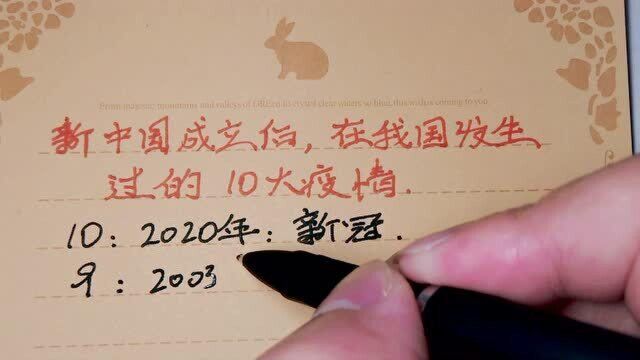 From majestic, mountains and valleys of GREEn to crystal clear waters so blue, this wish is coming to you
新中国成立后，在我国发生
过的10大疫情.
10：2020年：新冠.
9：2003